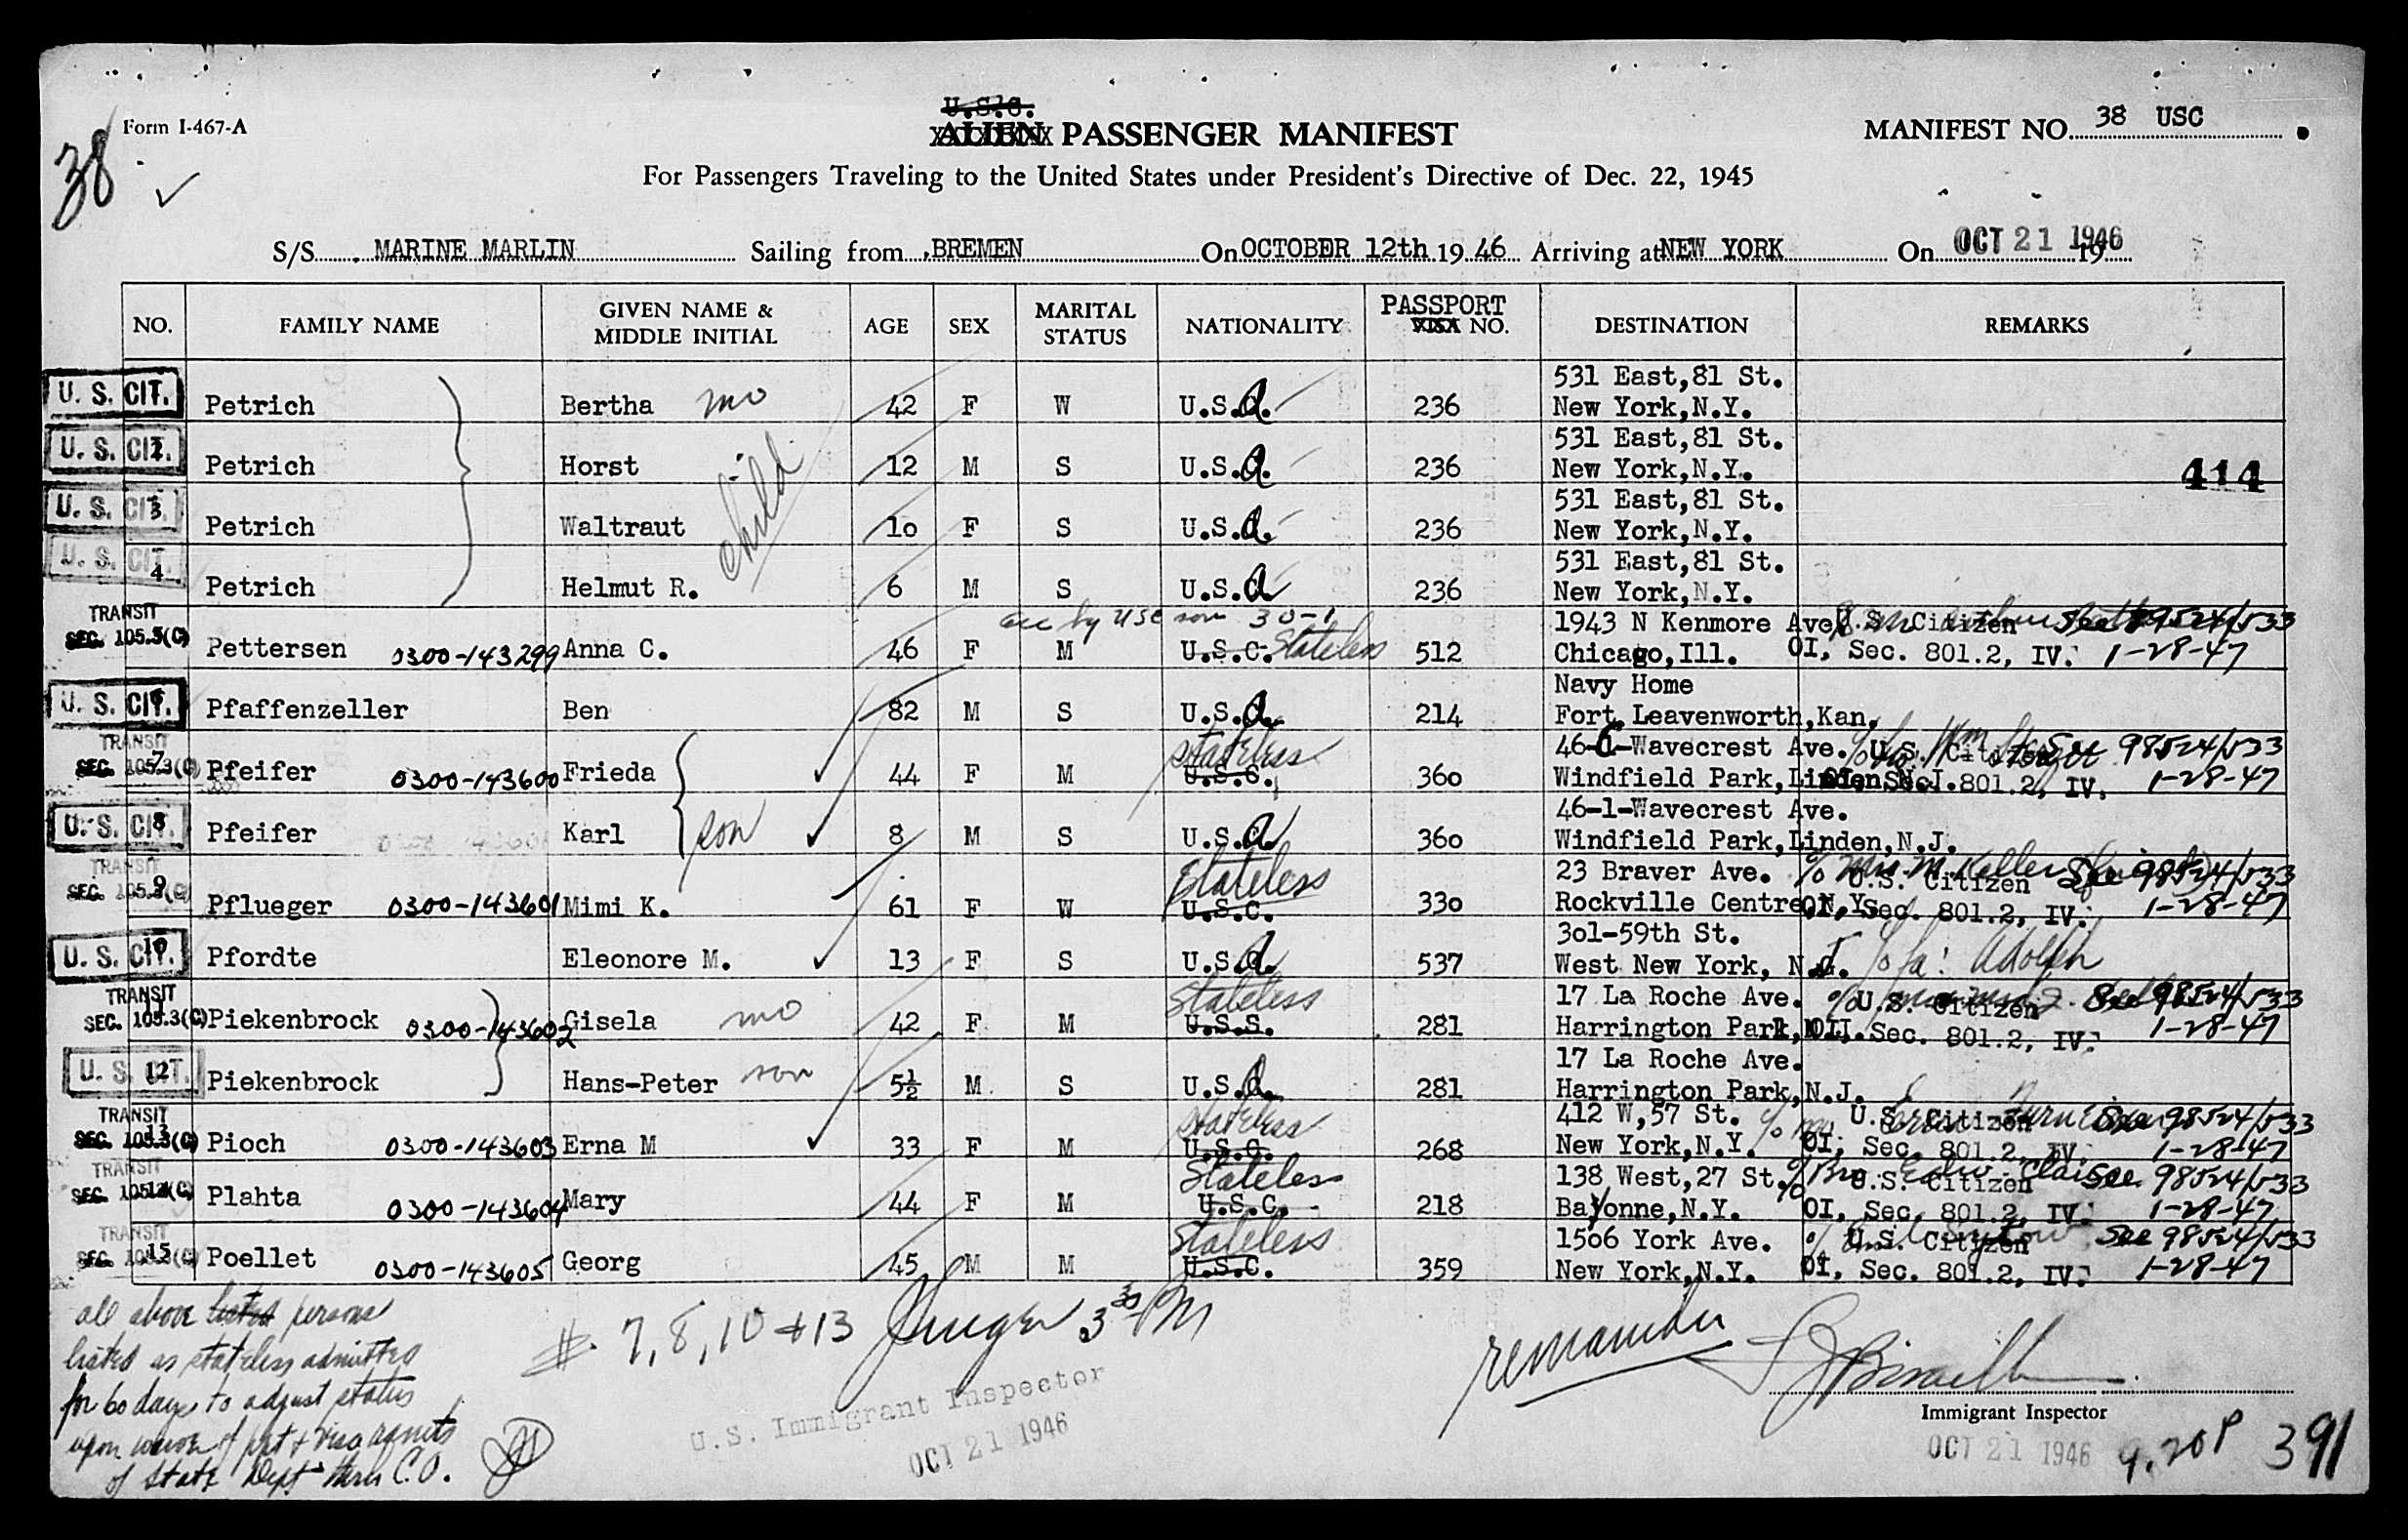 U.S.C.
Form I-467-A
ALIEN PASSENGER MANIFEST
MANIFEST NO. 38 USC
38
For Passengers Traveling to the United States under President's Directive of Dec. 22, 1945
S/S MARINE MARLIN Sailing from BREMEN On OCTOBER 12th 1946 Arriving at NEW YORK On OCT 21 1946 19
NO. FAMILY NAME GIVEN NAME & MIDDLE INITIAL AGE SEX MARITAL STATUS NATIONALITY PASSPORT VISA NO. DESTINATION REMARKS
531 East,81 St.
U. S. CIT. Petrich Bertha mo 42 F W U.S.A. 236 New York,N.Y.
531 East,81 St.
U. S. CIT. 2 Petrich Horst 12 M S U.S.A. 236 New York,N.Y. 414
child
531 East,81 St.
U. S. CIT. 3 Petrich Waltraut 10 F S U.S.A. 236 New York,N.Y.
531 East,81 St.
U. S. CIT. 4 Petrich Helmut R. 6 M S U.S.A 236 New York,N.Y.
TRANSIT acc by USC son 30-1 1943 N Kenmore Ave. U.S. Citizen See 98524/533
SEC. 105.3(C) 5 Pettersen 0300-143299 Anna C. 46 F M U.S.C. Stateless 512 Chicago,Ill. OI, Sec. 801.2, IV. 1-28-47
Navy Home
U. S. CIT. 6 Pfaffenzeller Ben 82 M S U.S.A. 214 Fort Leavenworth,Kan.
TRANSIT stateless 46-C-Wavecrest Ave. U.S. Citizen See 98524/533
SEC. 105.3(C) 7 Pfeifer 0300-143600 Frieda 44 F M U.S.C. 360 Windfield Park,Linden,N.J. OI, Sec. 801.2, IV. 1-28-47
46-1-Wavecrest Ave.
U. S. CIT. 8 Pfeifer Karl son 8 M S U.S.A 360 Windfield Park,Linden,N.J.
TRANSIT Stateless 23 Braver Ave. % Mrs. M. Keller U.S. Citizen See 98524/533
SEC. 105.3(C) 9 Pflueger 0300-143601 Mimi K. 61 F W U.S.C. 330 Rockville Centre,N.Y. OI, Sec. 801.2, IV. 1-28-47
301-59th St.
U. S. CIT. 10 Pfordte Eleonore M. 13 F S U.S.A. 537 West New York, N.J. % fa: Adolph
TRANSIT Stateless 17 La Roche Ave. U.S. Citizen See 98524/533
SEC. 105.3(C) 11 Piekenbrock 0300-143602 Gisela mo 42 F M U.S.S. 281 Harrington Park,N.J. OI, Sec. 801.2, IV. 1-28-47
17 La Roche Ave.
U. S. CIT. 12 Piekenbrock Hans-Peter son 5½ M S U.S.A. 281 Harrington Park,N.J.
TRANSIT stateless 412 W,57 St. U.S. Citizen See 98524/533
SEC. 105.3(C) 13 Pioch 0300-143603 Erna M 33 F M U.S.C. 268 New York,N.Y. OI, Sec. 801.2, IV. 1-28-47
TRANSIT Stateless 138 West,27 St. U.S. Citizen See 98524/533
SEC. 105.3(C) 14 Plahta 0300-143604 Mary 44 F M U.S.C. 218 Bayonne,N.Y. OI, Sec. 801.2, IV. 1-28-47
TRANSIT Stateless 1506 York Ave. U.S. Citizen See 98524/533
SEC. 105.3(C) 15 Poellet 0300-143605 Georg 45 M M U.S.C. 359 New York,N.Y. OI, Sec. 801.2, IV. 1-28-47
all above listed persons
listed as stateless admitted
for 60 days to adjust status
upon waiver of ppt & visa
of State Dept C.O.
# 7, 8, 10 + 13 3 30 PM
U.S. Immigrant Inspector
OCT 21 1946
remainder
Immigrant Inspector
OCT 21 1946 9.20 P 391